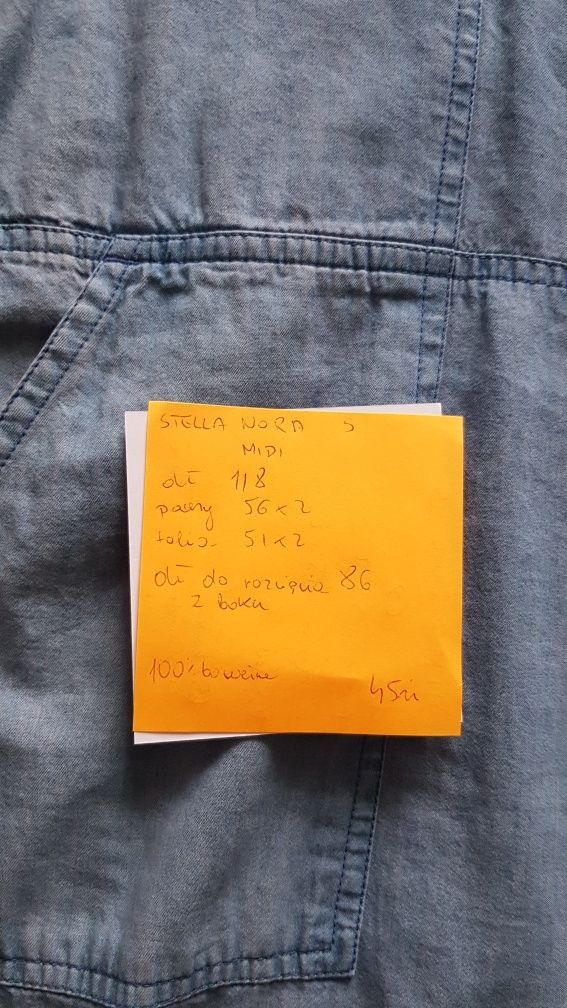 STELLA NORA S
MIDI
dł 118
pachy 56x2
talia 51x2
dł do rozcięcia 86
z boku
100% bawełna
45zł